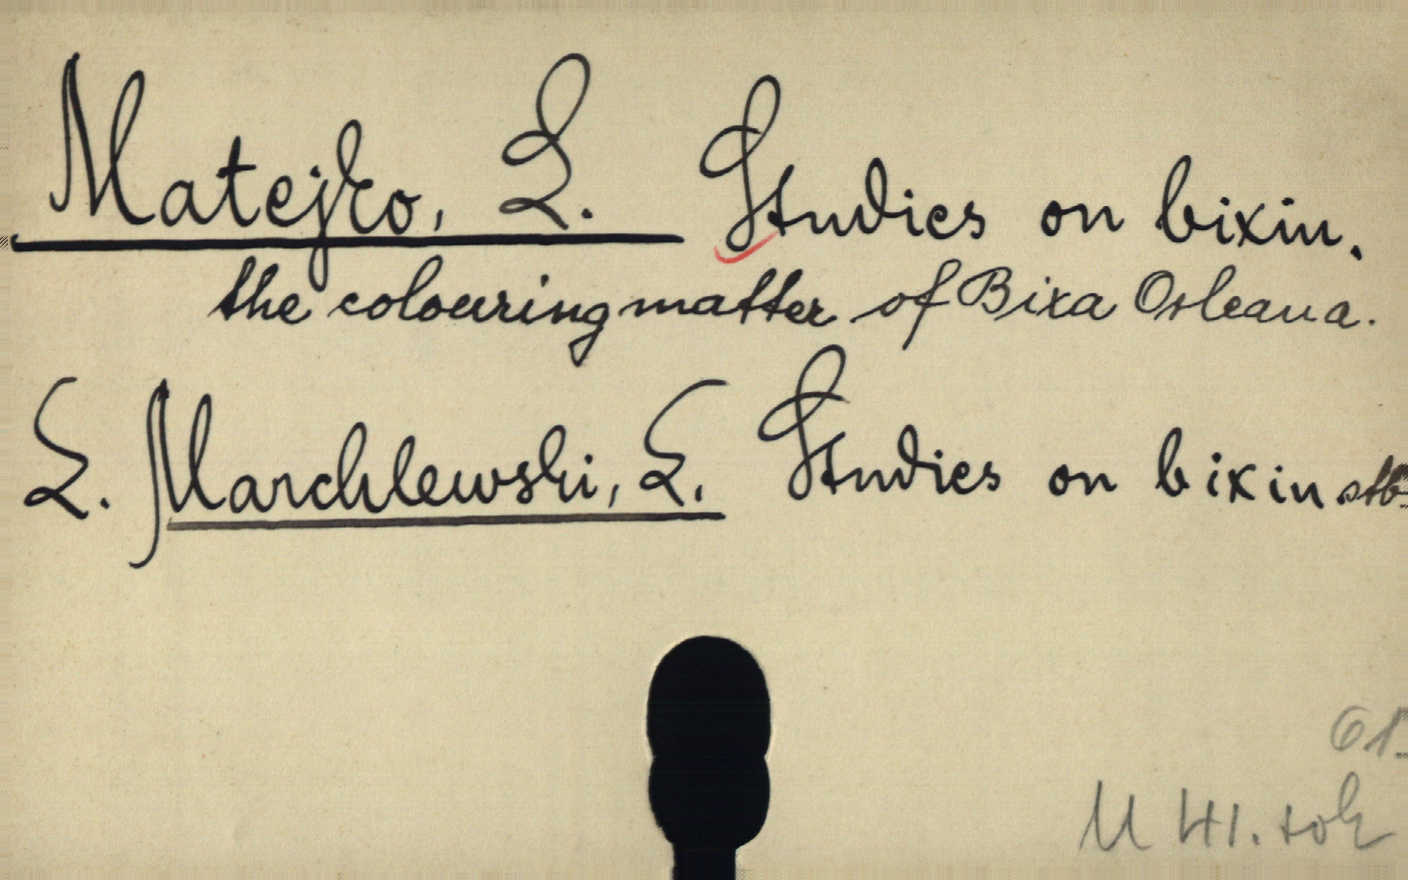 Matejko, L. Studies on bixin.
the colouring matter of Bixa Orleana.
L. Marchlewski, L. Studies on bixin stb.
61